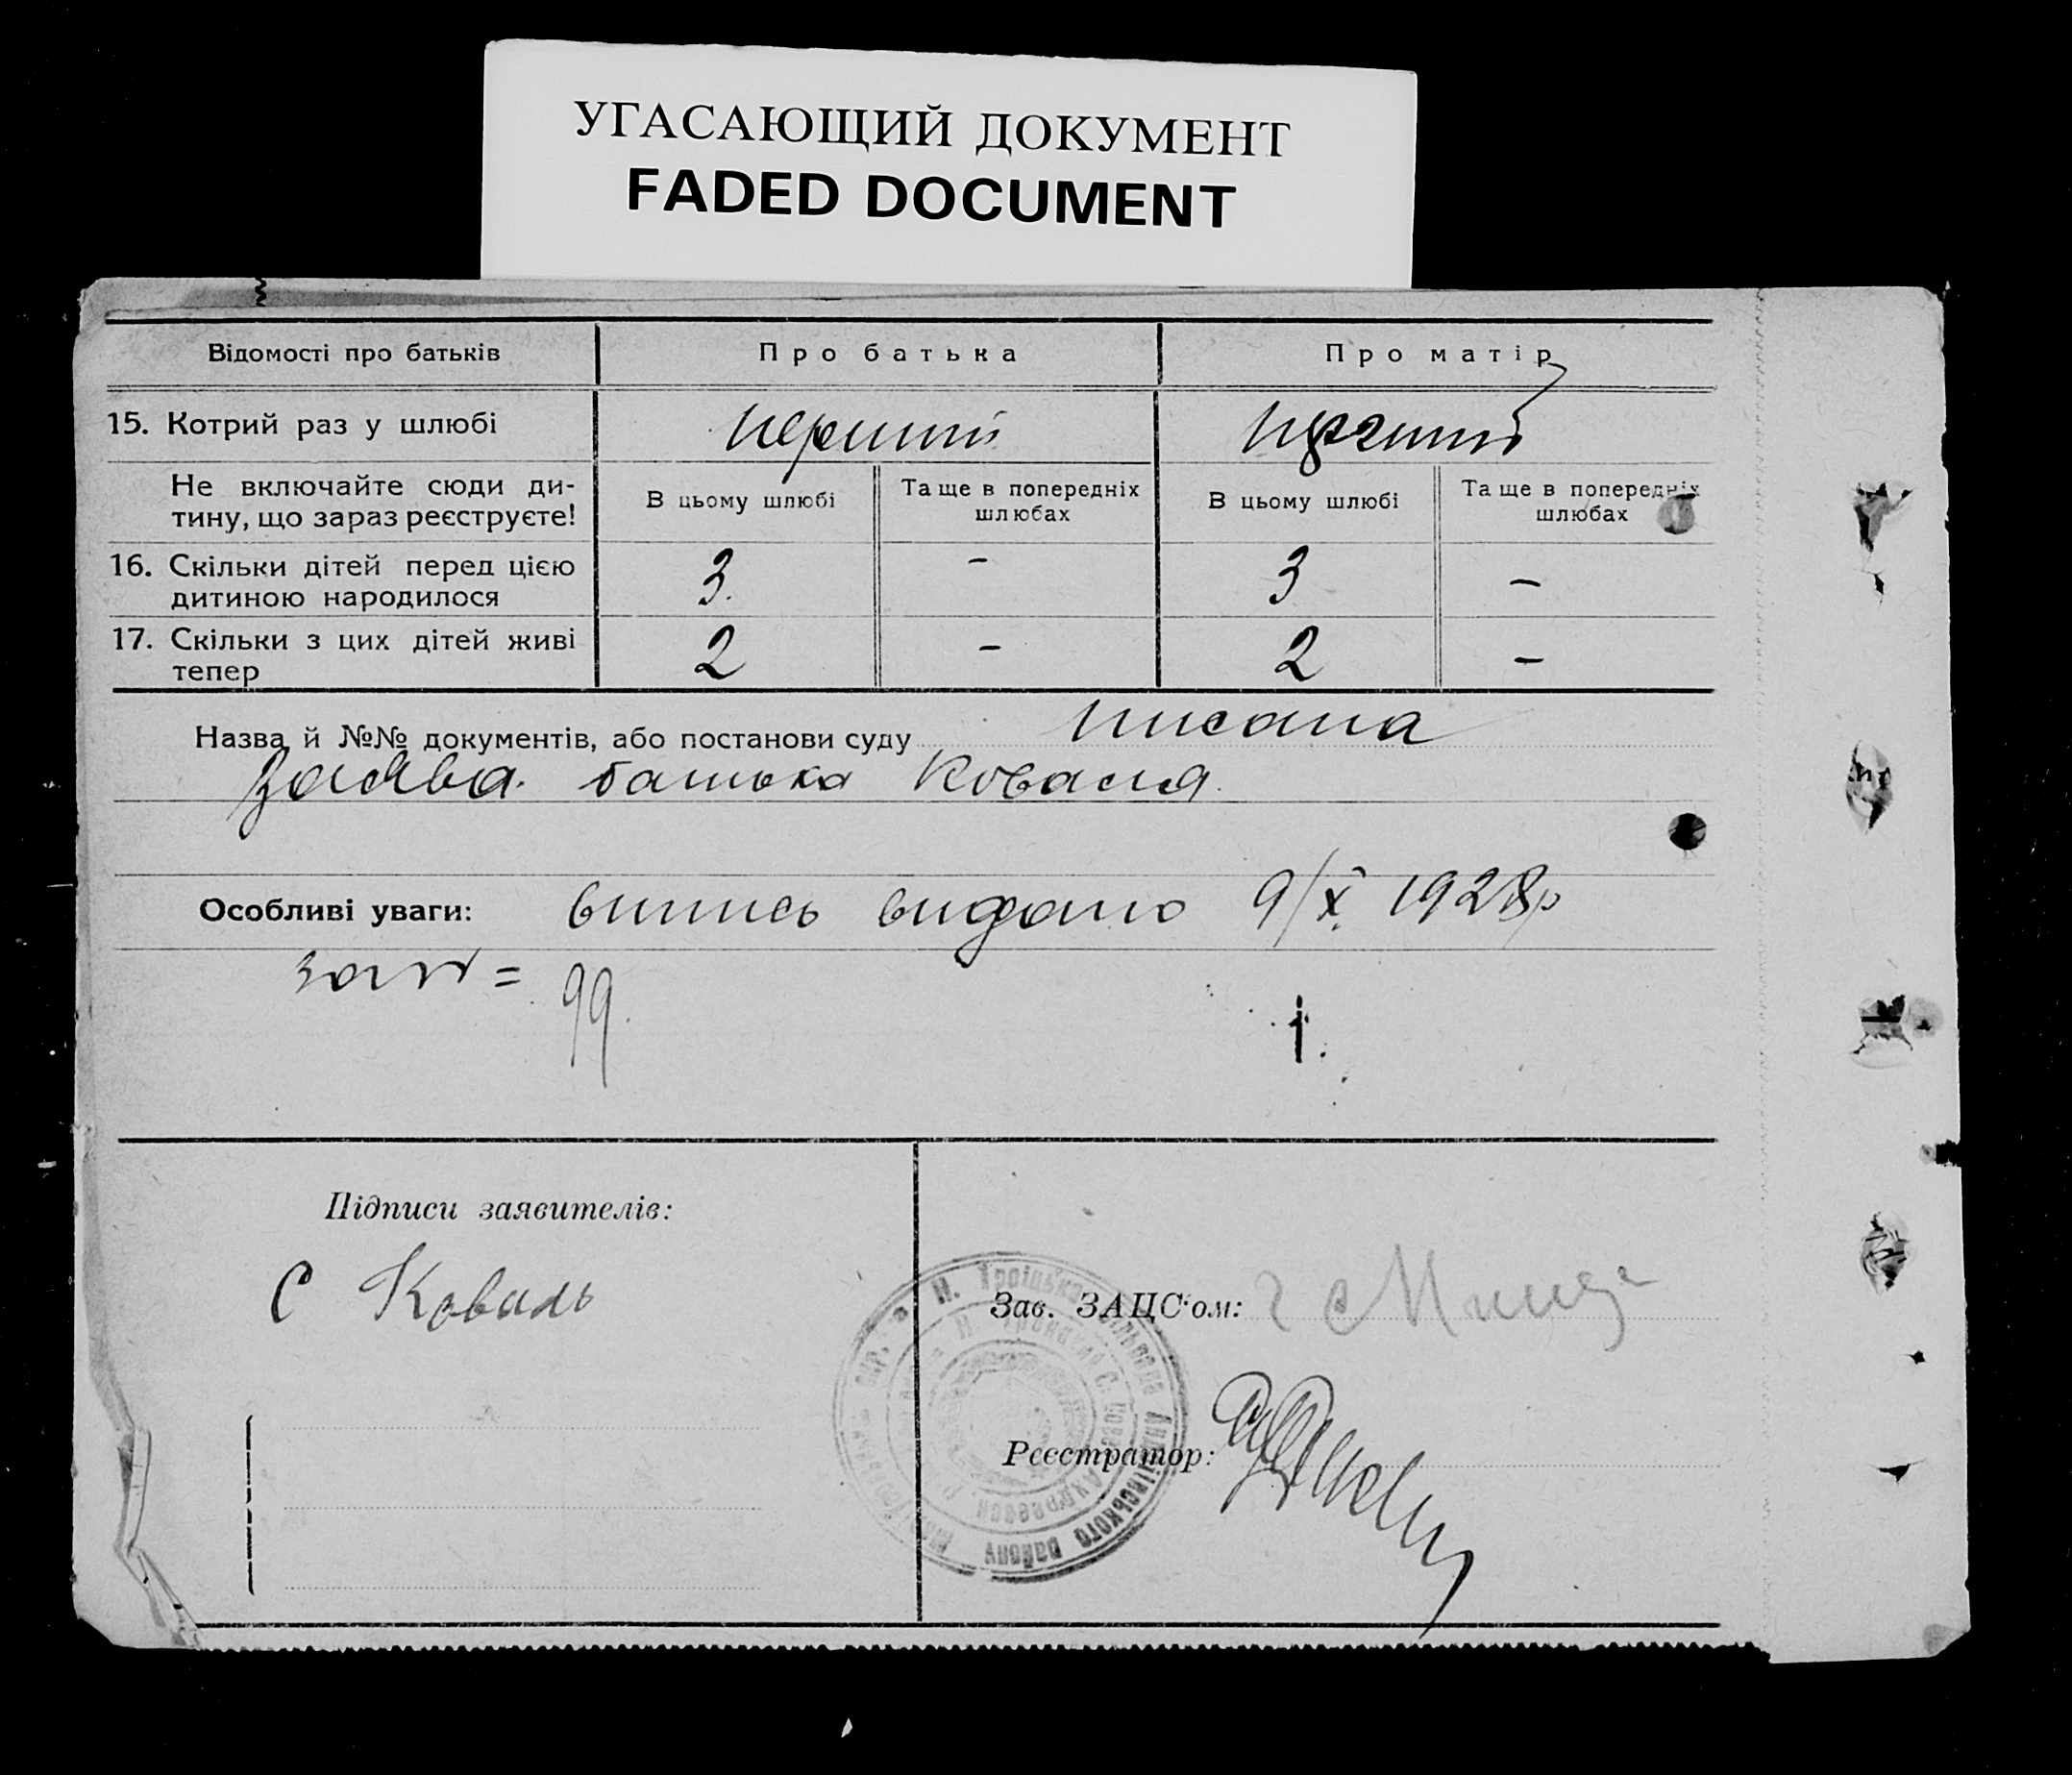 УГАСАЮЩИЙ ДОКУМЕНТ
FADED DOCUMENT
Відомості про батьків
Про батька
Про матір
15. Котрий раз у шлюбі
перший
перший
Не включайте сюди ди-
тину, що зараз реєструєте!
В цьому шлюбі
Та ще в попередніх
шлюбах
В цьому шлюбі
Та ще в попередніх
шлюбах
16. Скільки дітей перед цією
дитиною народилося
3.
-
3
-
17. Скільки з цих дітей живі
тепер
2
-
2
-
Назва й №№ документів, або постанови суду
писана
заява батька Коваля.
Особливі уваги: випись видано 9/X 1928р
= 99.
Підписи заявителів:
С Коваль
Зав. ЗАЦС'ом:
Реєстратор:
М. Троїцька района